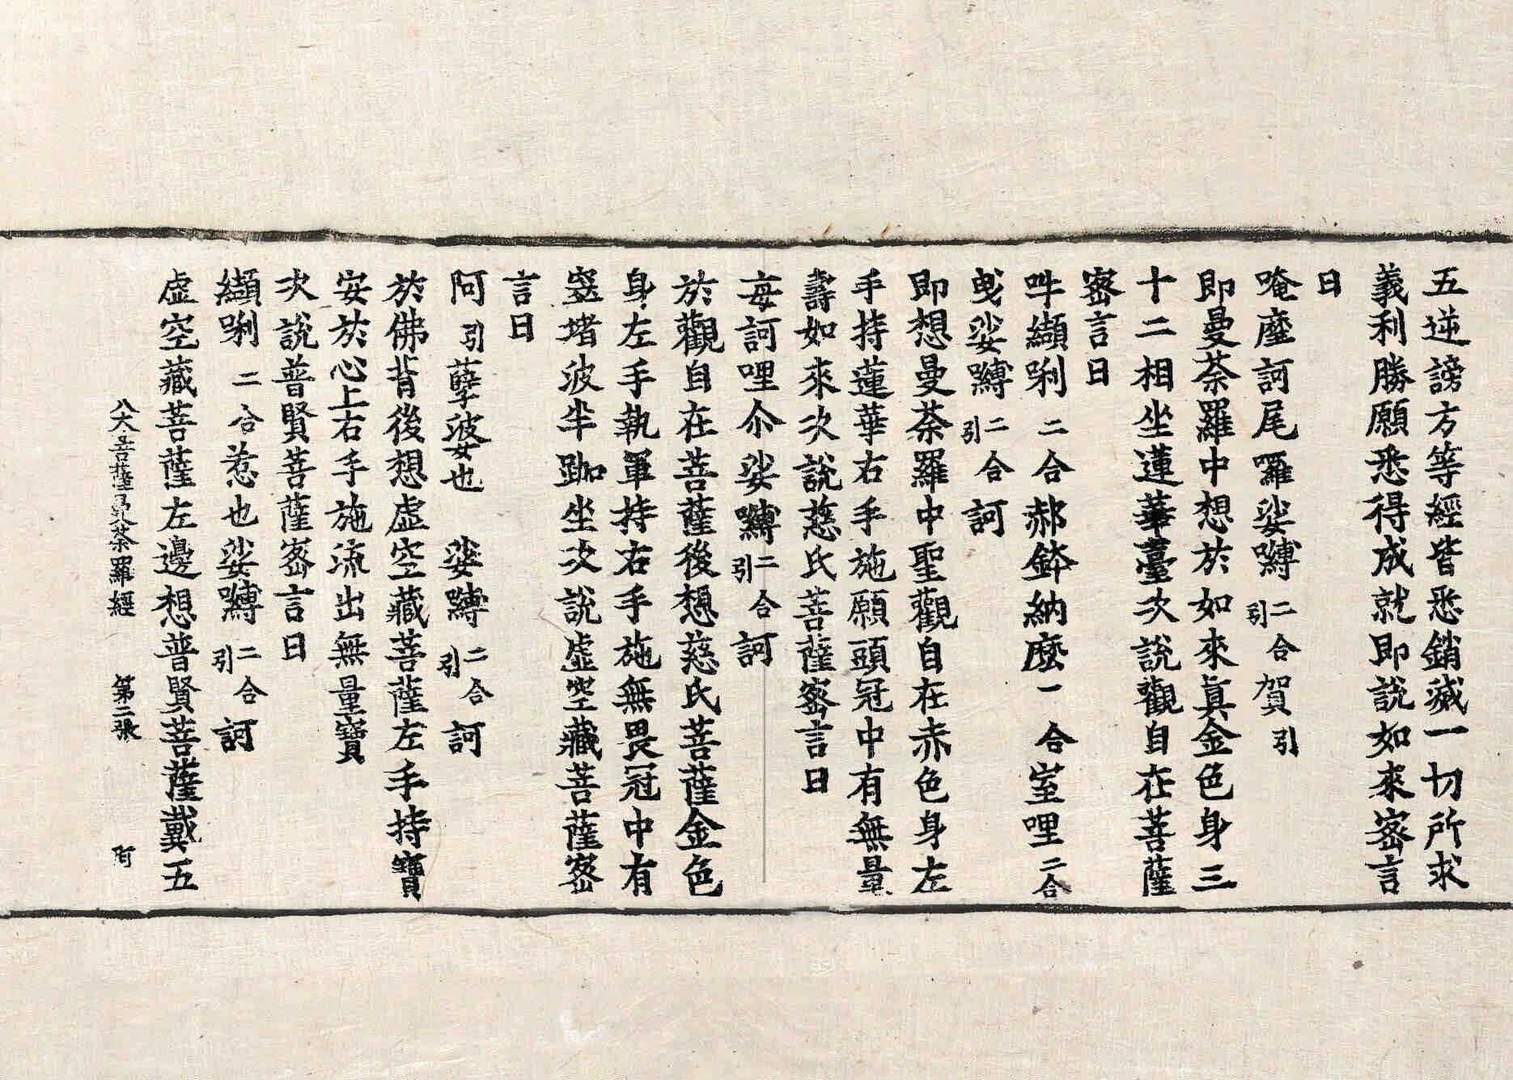 五逆謗方等經皆悉銷滅一切所求
義利勝願悉得成就即說如來密言
曰
唵麼訶尾囉娑嚩二合引賀引
即曼荼羅中想於如來真金色身三
十二相坐蓮華臺次說觀自在菩薩
密言曰
吽纈唎二合郝鉢納麼一合室哩二合
曵娑嚩二合引訶
即想曼荼羅中聖觀自在赤色身左
手持蓮華右手施願頭冠中有無量
壽如來次說慈氏菩薩密言曰
每訶哩尒娑嚩二合引訶
於觀自在菩薩後想慈氏菩薩金色
身左手執軍持右手施無畏冠中有
窣堵波半跏坐次說虛空藏菩薩密
言曰
阿引孽婆也娑嚩二合引訶
於佛背後想虛空藏菩薩左手持寶
安於心上右手施流出無量寶
次說普賢菩薩密言曰
纈唎二合惹也娑嚩二合引訶
虛空藏菩薩左邊想普賢菩薩戴五
八大菩薩曼荼羅經 第二張 阿